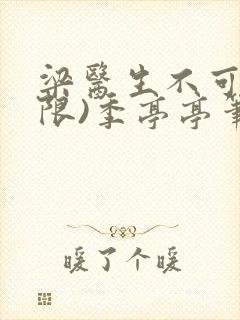 梁醫生不可
限)季亭亭筆
暖了个暖